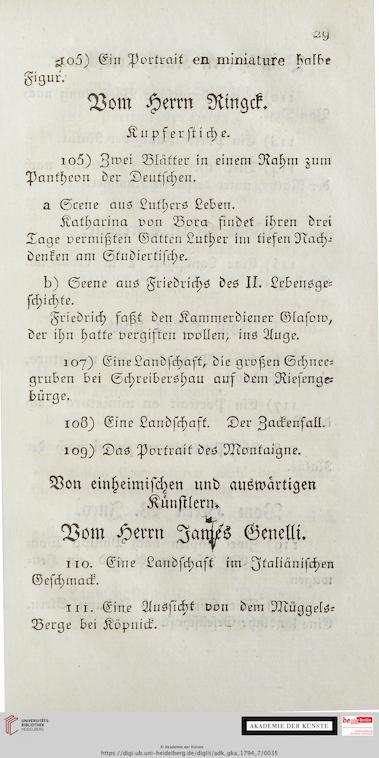 29
105) Ein Portrait en miniature halbe
Figur.
Vom Herrn Ringck.
Kupferstiche.
105) Zwei Blätter in einem Rahm zum
Pantheon der Deutschen.
a Scene aus Luthers Leben.
Katharina von Bora findet ihren drei
Tage vermißten Gatten Luther im tiefen Nach-
denken am Studiertische.
b) Scene aus Friedrichs des II. Lebensge-
schichte.
Friedrich faßt den Kammerdiener Glasow,
der ihn hatte vergiften wollen, ins Auge.
107) Eine Landschaft, die großen Schnee-
gruben bei Schreibershau auf dem Riesenge-
bürge.
108) Eine Landschaft. Der Zackenfall.
109) Das Portrait des Montaigne.
Von einheimischen und auswärtigen
Künstlern.
Vom Herrn Janus Genelli.
110. Eine Landschaft im Italiänischen
Geschmack.
111. Eine Aussicht von dem Müggels-
Berge bei Köpnick.
UNIVERSITÄTS-
BIBLIOTHEK
HEIDELBERG
AKADEMIE DER KÜNSTE
© Akademie der Künste
https://digi.ub.uni-heidelberg.de/diglit/adk_gka_1794_7/0035